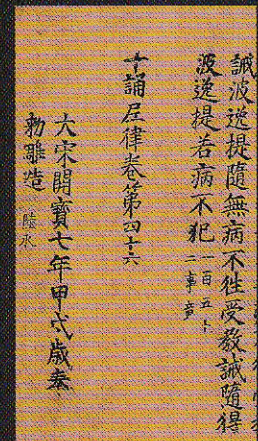 誡波逸提隨無病不往受教誡隨得
波逸提若病不犯一百五十
二事竟
十誦尼律卷第四十六
大宋開寶七年甲戌歲奉
勑雕造 陸永